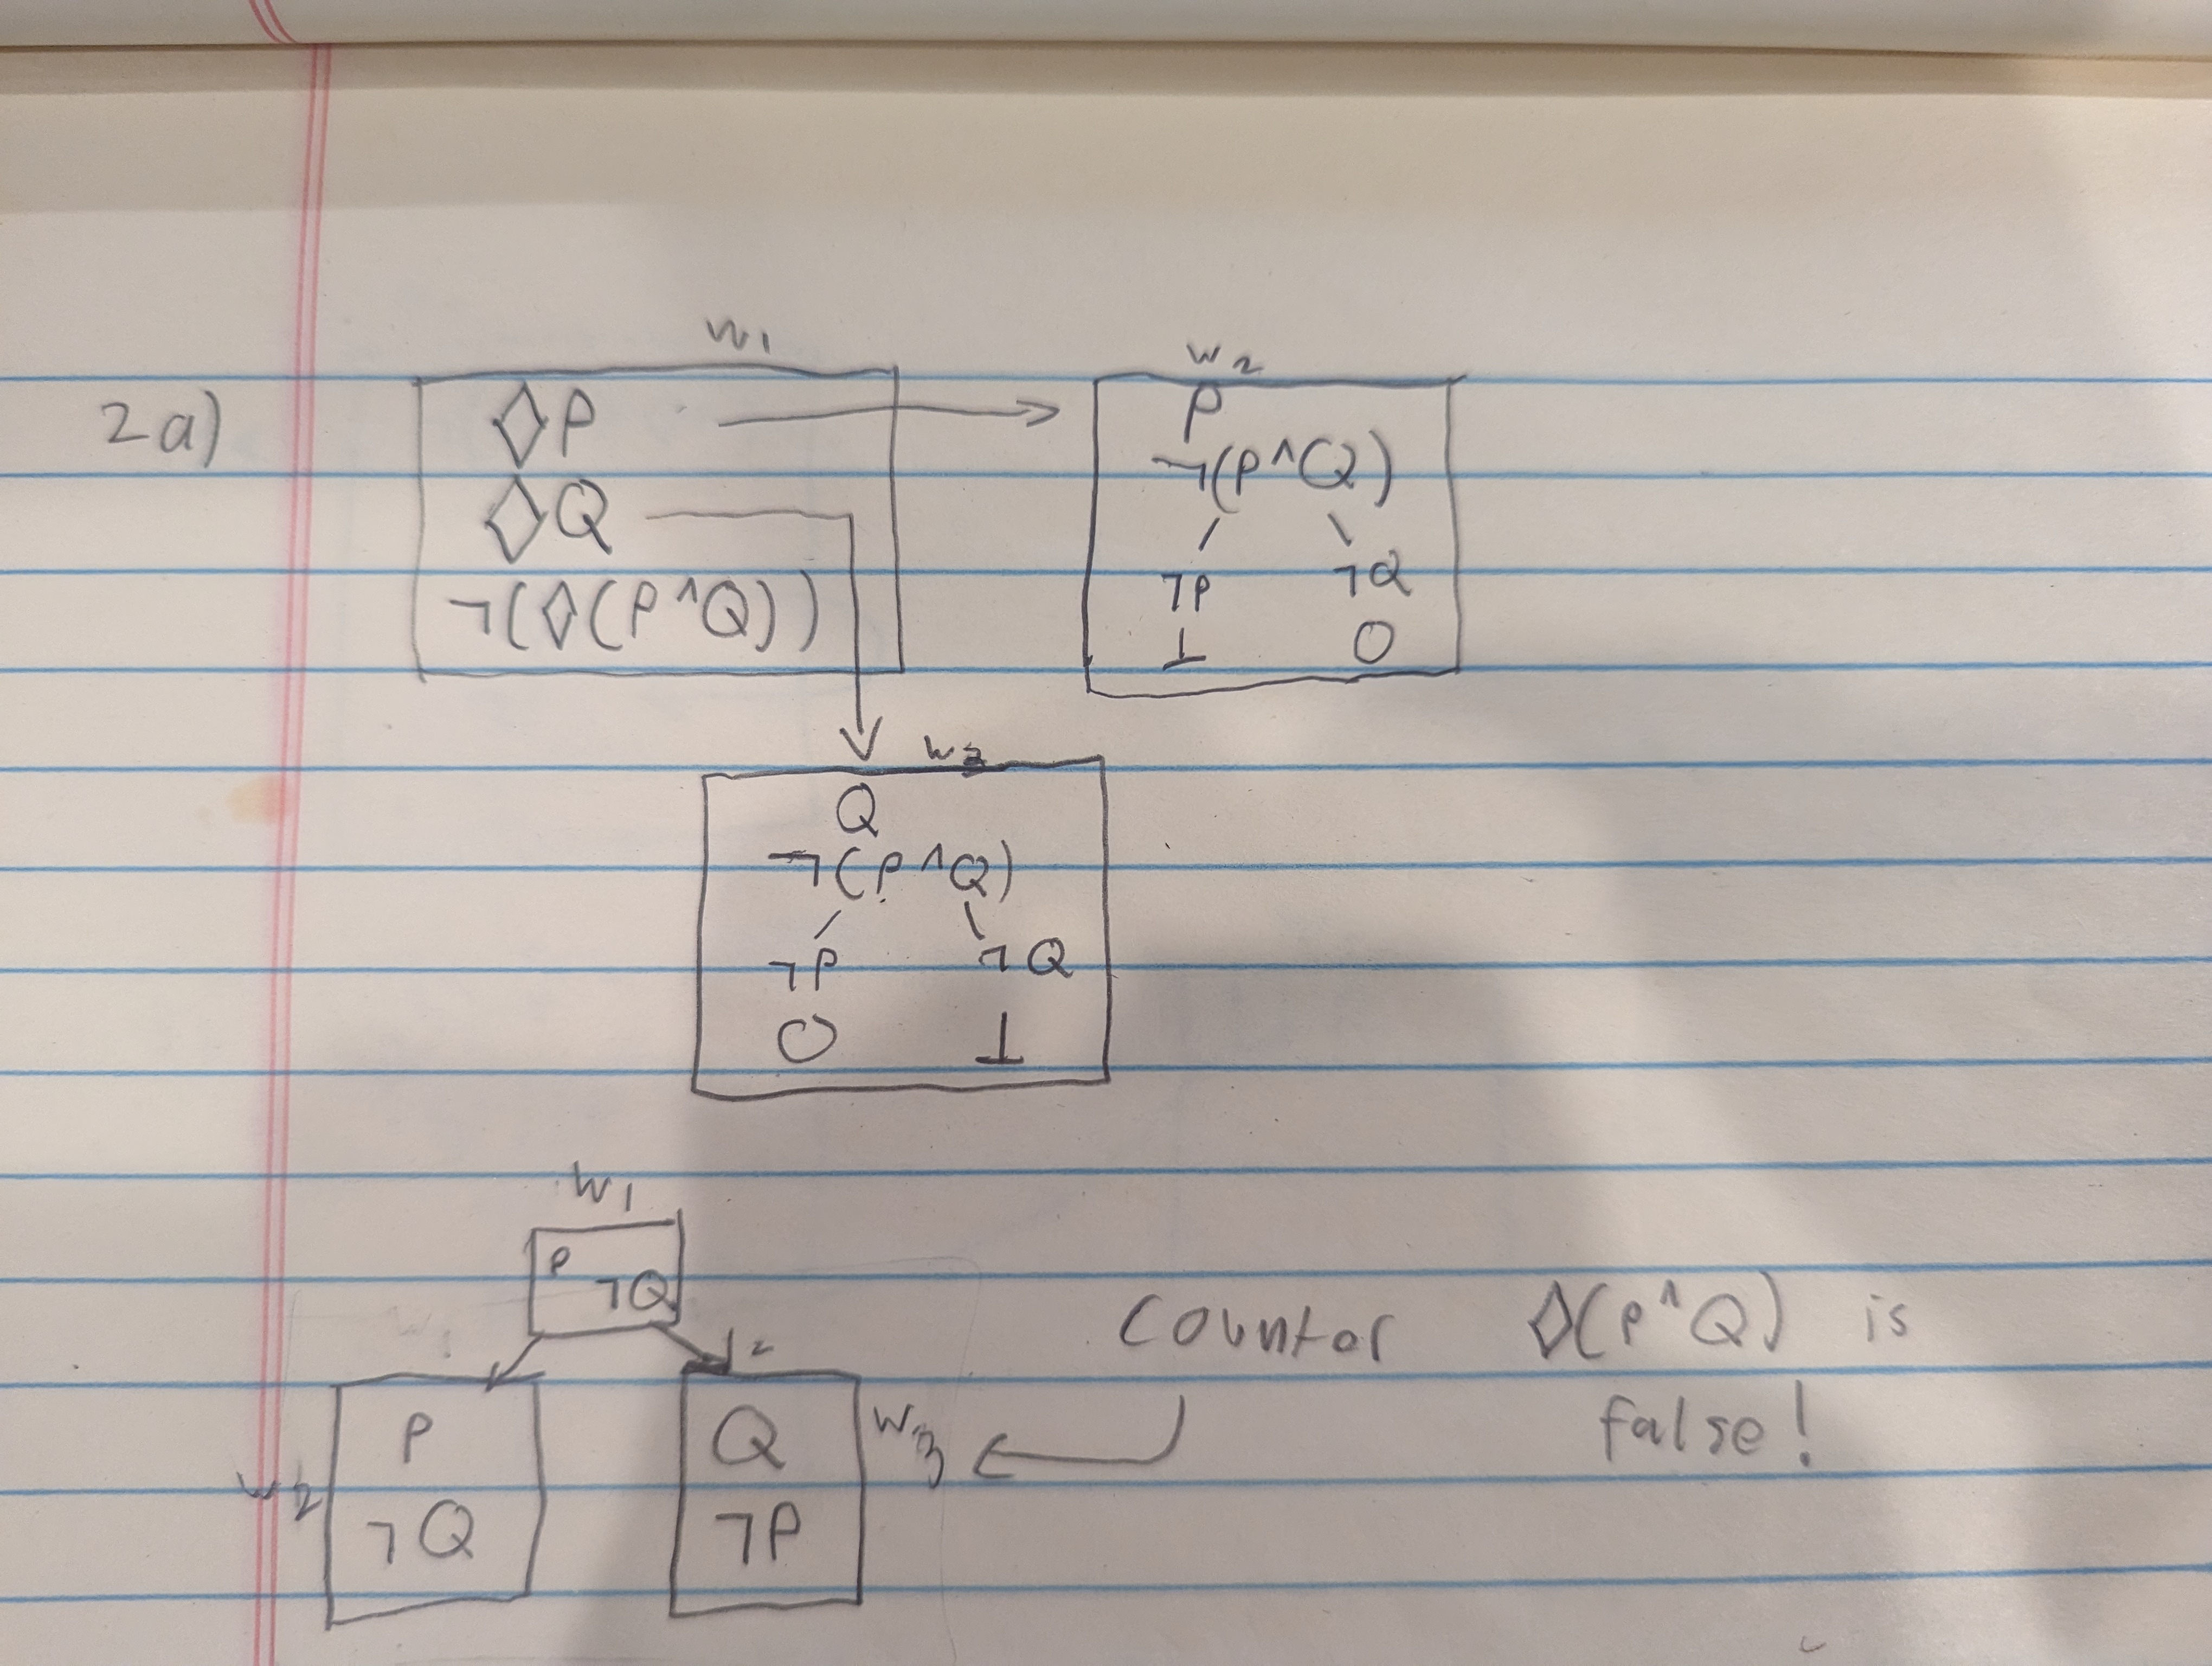 2a)
W1
◇P
◇Q
¬(◇(P∧Q))
W2
P
¬(P∧Q)
¬P ¬Q
⊥ O
W3
Q
¬(P∧Q)
¬P ¬Q
O ⊥
W1
P
¬Q
W2
P
¬Q
Q
¬P
W3
Counter ◇(P∧Q) is
false!